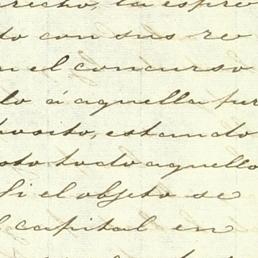 recho, la espre
to con sus re
n el concurso
lo á aquella fun
posito, estando
oto todo aquello
Si el objeto se
l capital en